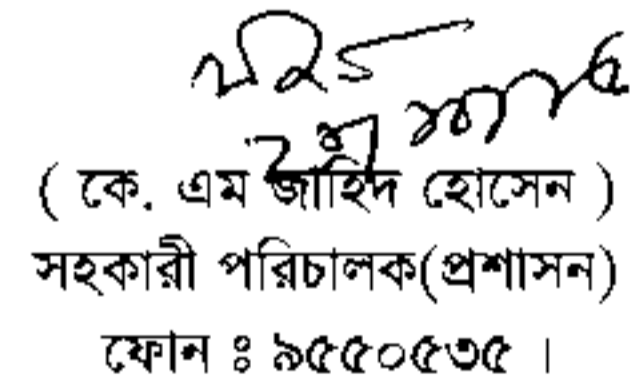 ( কে. এম জাহিদ হোসেন )
সহকারী পরিচালক(প্রশাসন)
ফোন ঃ ৯৫৫০৫৩৫ ।